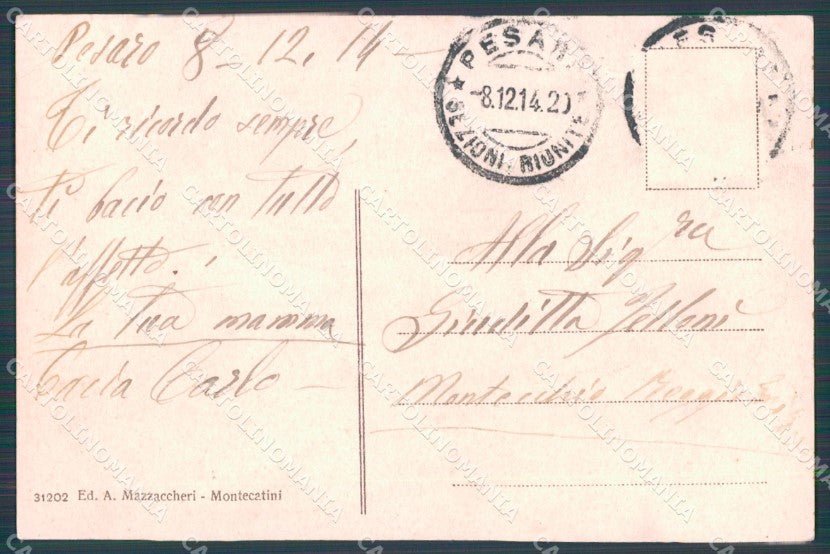 Pesaro 8-12.14-
Ti ricordo sempre,
ti bacio con tutto
l'affetto.
La tua mamma
Bacia Carlo -
PESARO
-8.12.14.20
★ SEZIONI RIUNITE
Alla Sigra
Giuditta
Montecchio Reggio Emilia
31202 Ed. A. Mazzaccheri - Montecatini
CARTOLINOMANIA